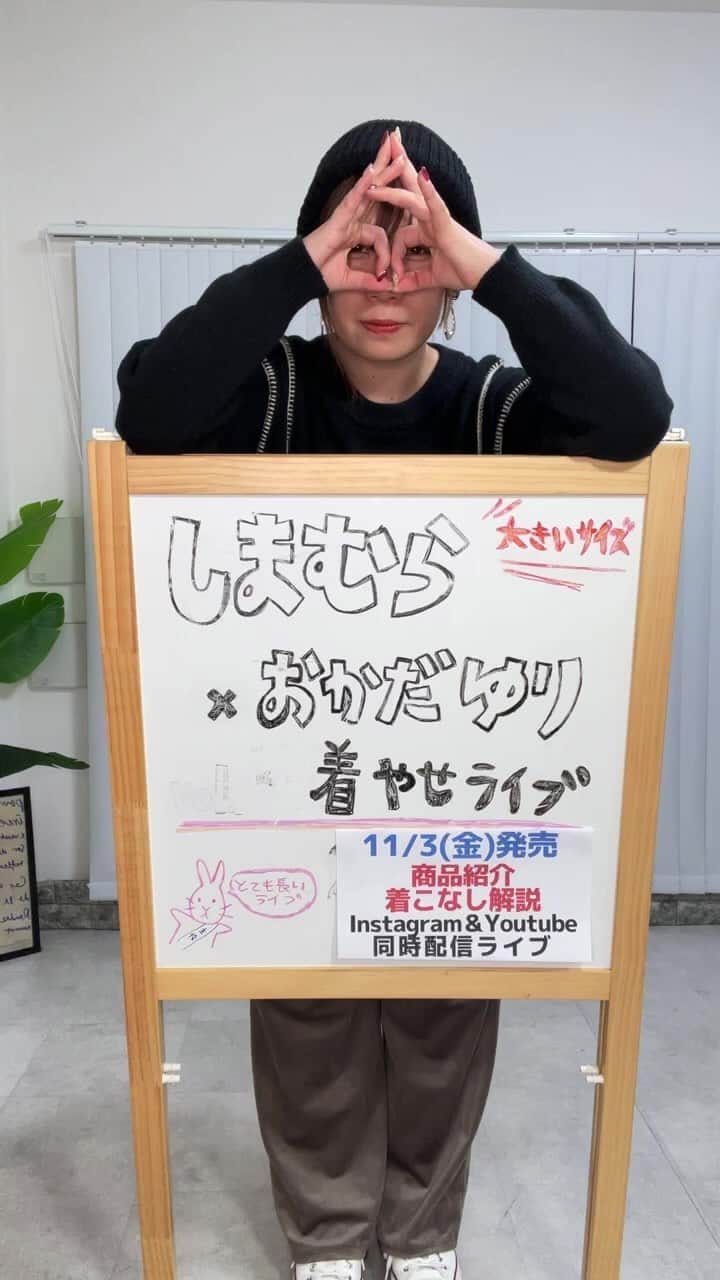 しまむら
大きいサイズ
×おかだゆり
着やせライブ
11/3(金)発売
商品紹介
着こなし解説
Instagram＆Youtube
同時配信ライブ
とても長い
ライブ